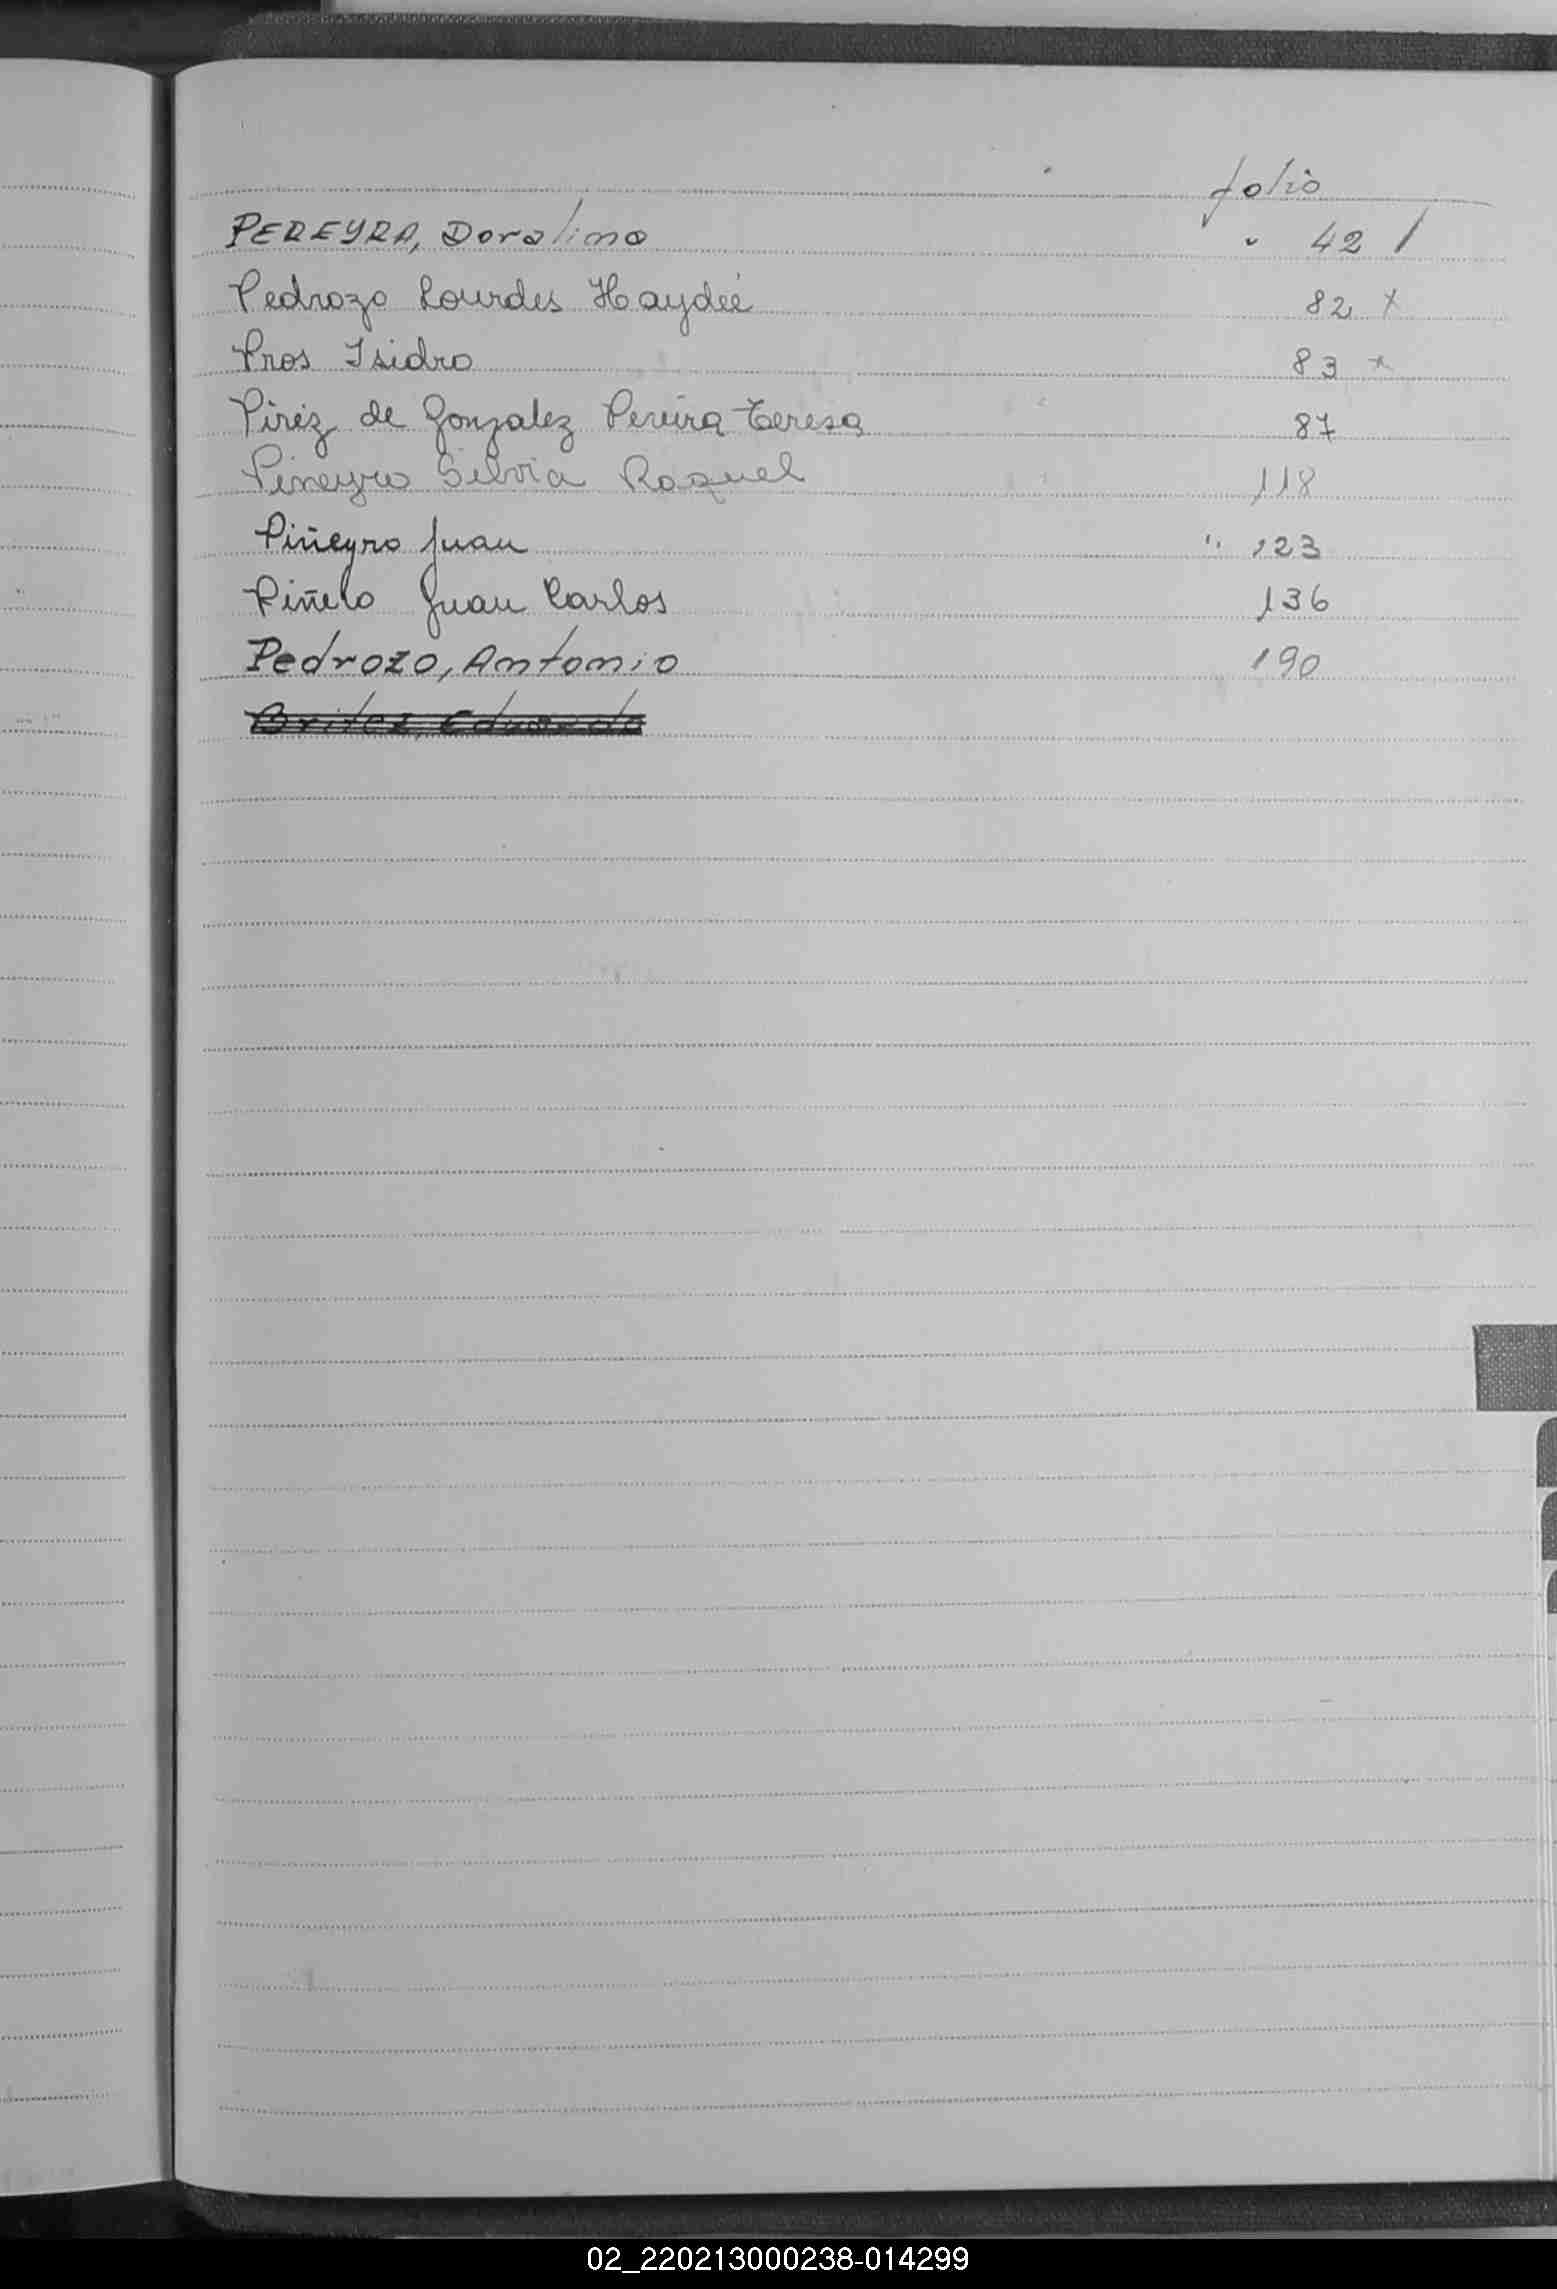 folio
PEREYRA, Doralina " 42 /
Pedrozo Lourdes Haydeé 82 x
Pros Isidro 83 x
Piréz de Gonzalez Pereira Teresa 87
Pineyro Silvia Raquel 118
Piñeyro Juan " 123
Piñelo Juan Carlos 136
Pedrozo, Antonio 190
Britez, Eduardo
02_220213000238-014299